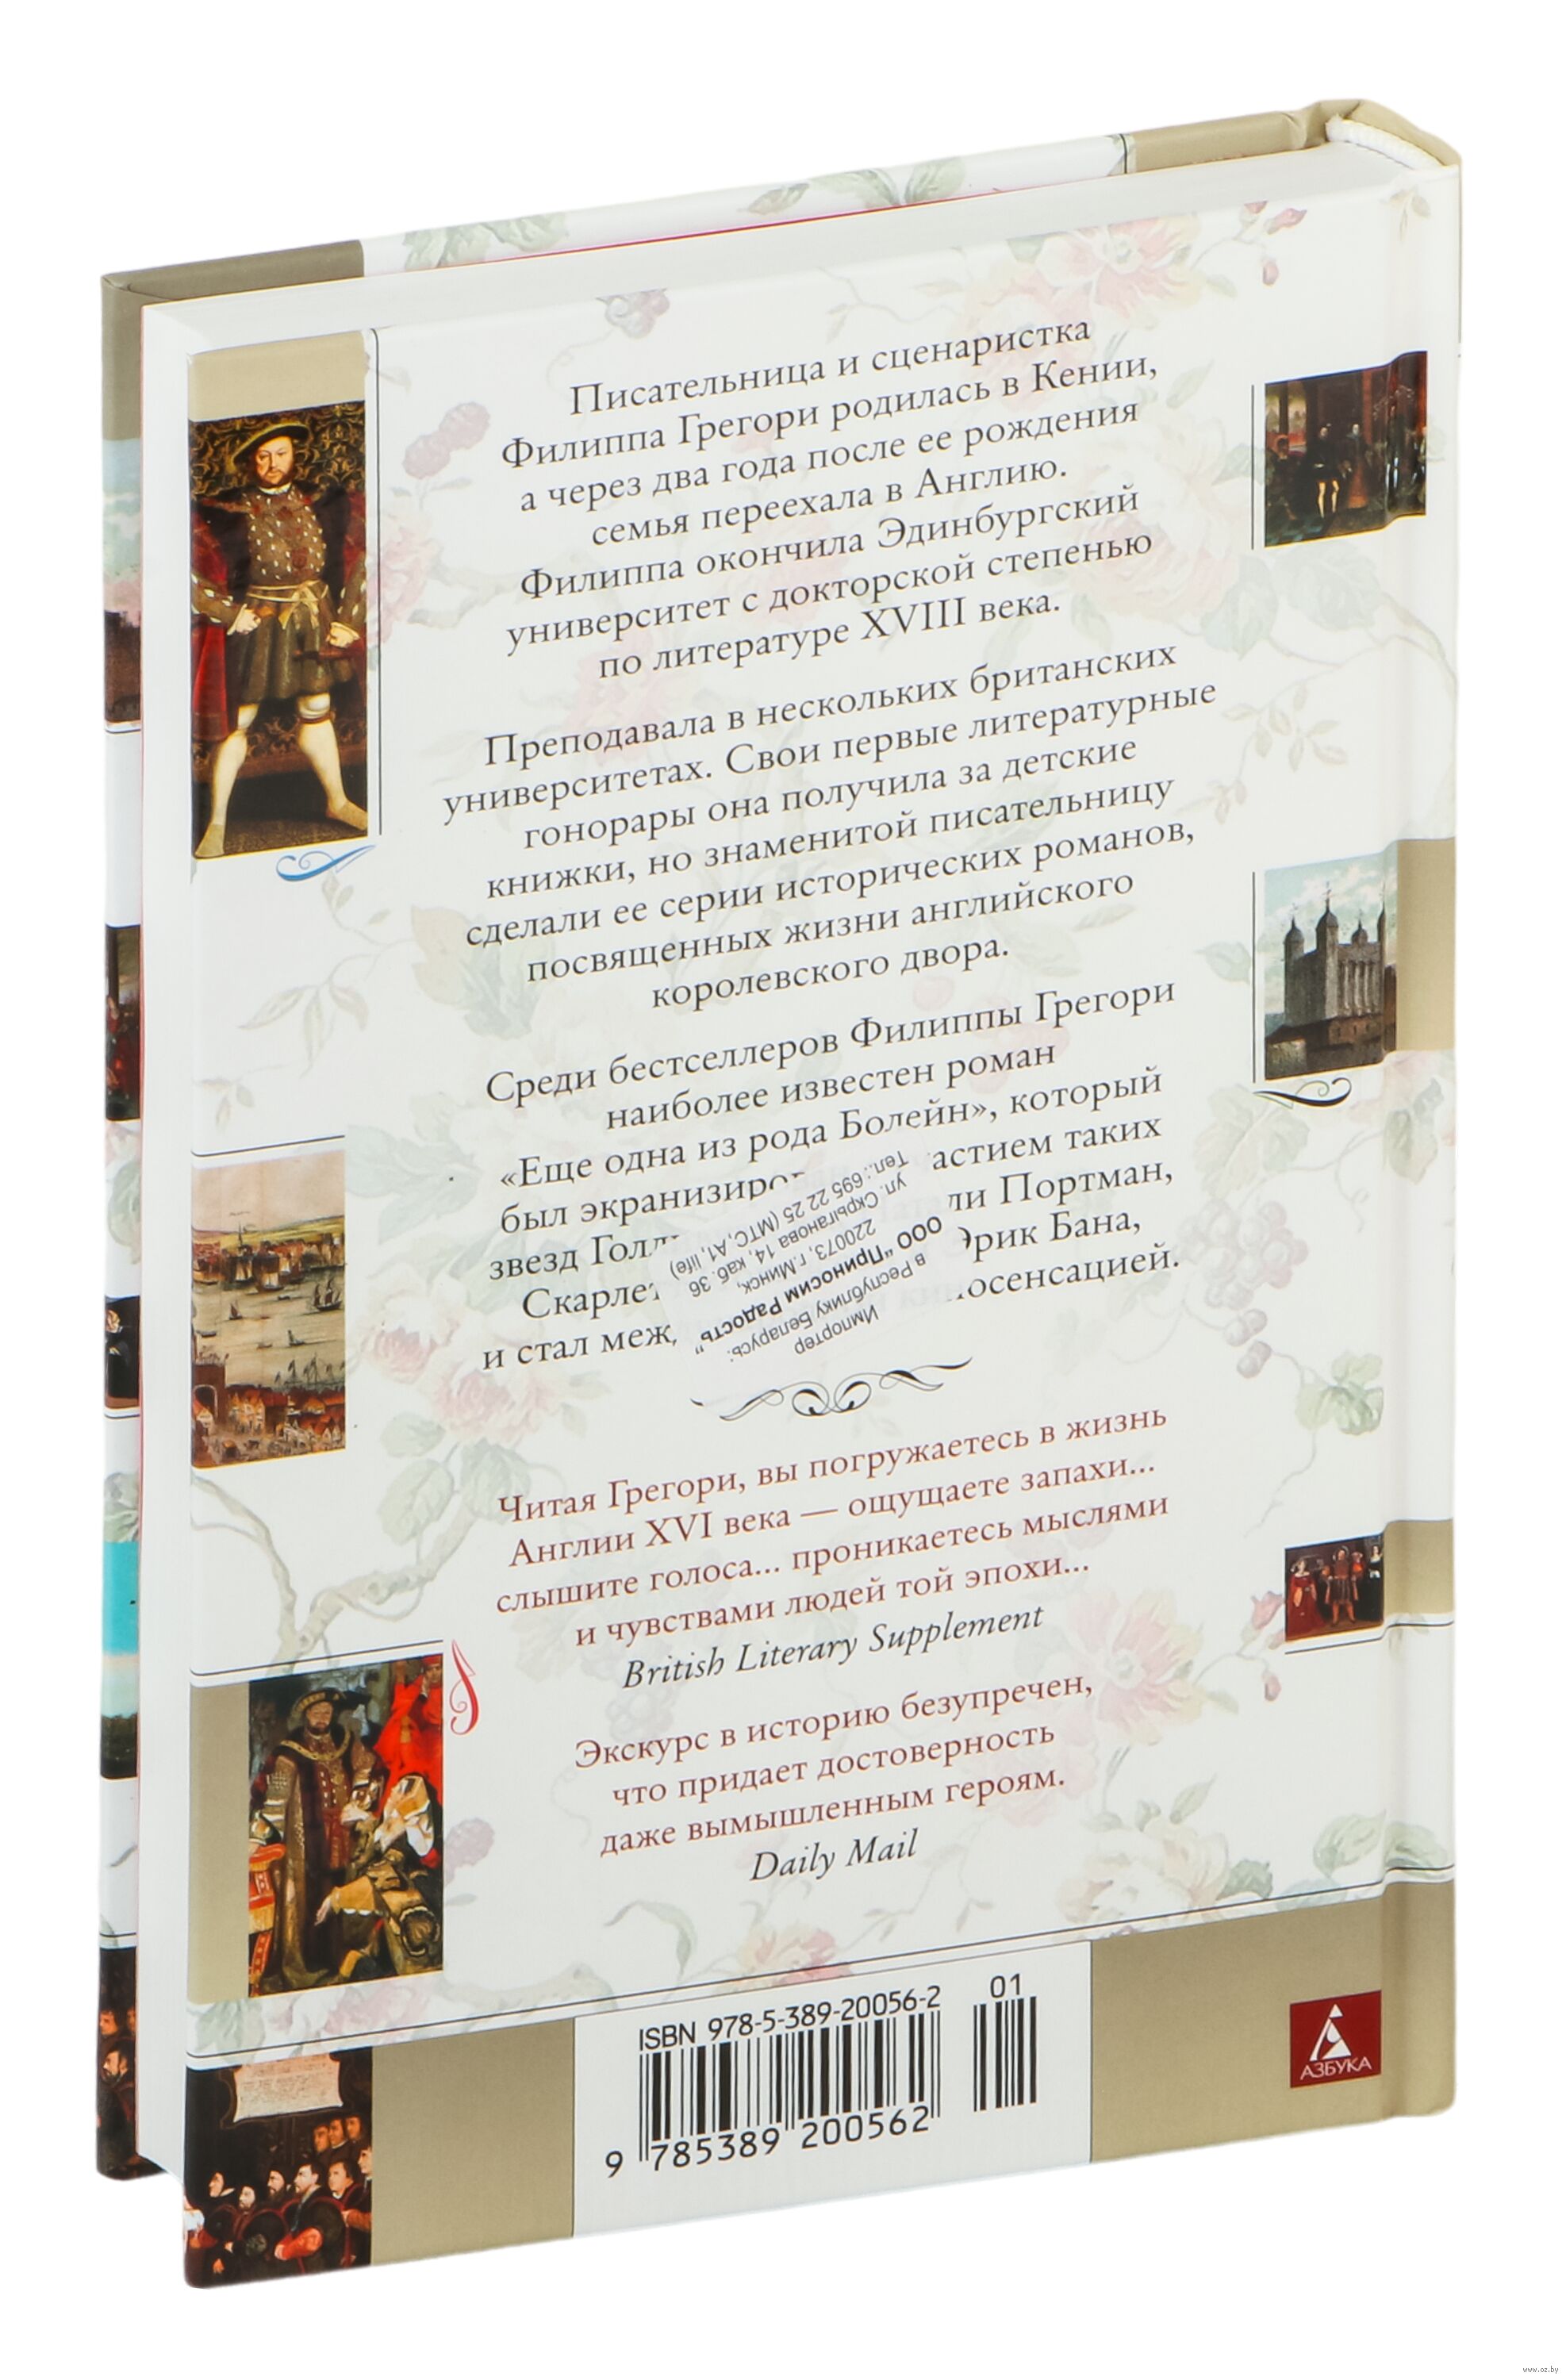 Писательница и сценаристка
Филиппа Грегори родилась в Кении,
а через два года после ее рождения
семья переехала в Англию.
Филиппа окончила Эдинбургский
университет с докторской степенью
по литературе XVIII века.
Преподавала в нескольких британских
университетах. Свои первые литературные
гонорары она получила за детские
книжки, но знаменитой писательницу
сделали ее серии исторических романов,
посвященных жизни английского
королевского двора.
Среди бестселлеров Филиппы Грегори
наиболее известен роман
«Еще одна из рода Болейн», который
был таких
звезд Портман,
Бана,
и стал
Импортер
в Республику Беларусь:
ООО "Приносим Радость"
220073, г.Минск,
ул. Скрыганова 14, каб. 36
Тел.: 695 22 25 (МТС, А1, life)
Читая Грегори, вы погружаетесь в жизнь
Англии XVI века — ощущаете запахи...
слышите голоса... проникаетесь мыслями
и чувствами людей той эпохи...
British Literary Supplement
Экскурс в историю безупречен,
что придает достоверность
даже вымышленным героям.
Daily Mail
ISBN 978-5-389-20056-2
01
9 785389 200562
АЗБУКА
www.oz.by